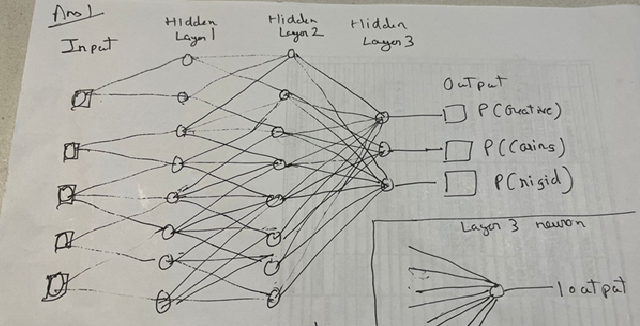 Ans 1
Input
Hidden
Layer 1
Hidden
Layer 2
Hidden
Layer 3
Output
P(Creative)
P(Caring)
P(rigid)
Layer 3 neuron
1 output